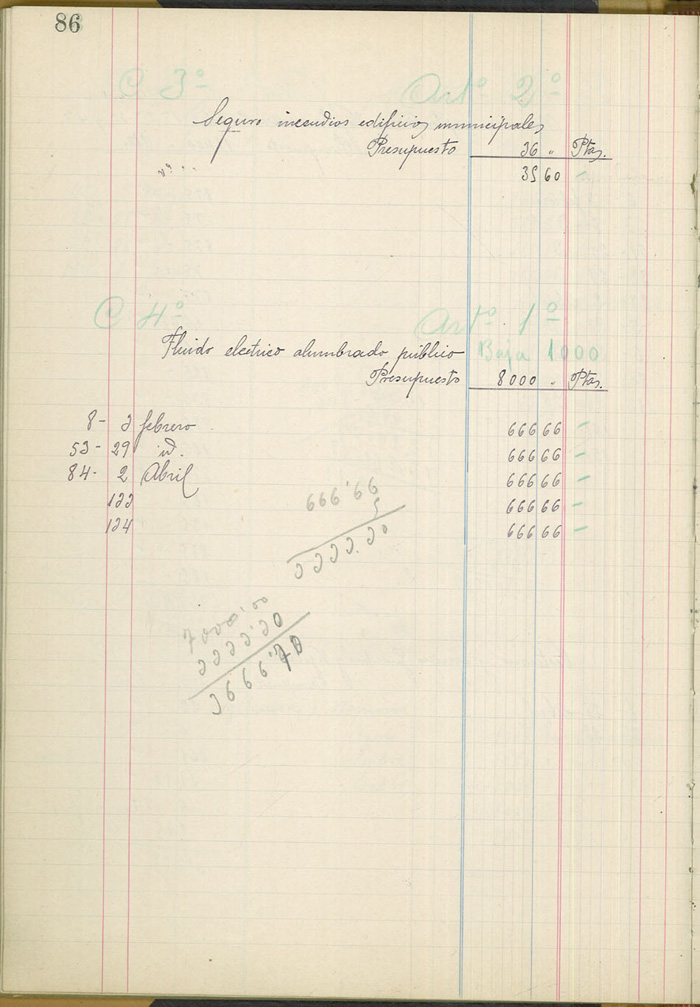 86
C 3º Artº 2º
Seguro incendios edificios municipales
Presupuesto 36 " Ptas.
35 60
C 4º Artº 1º
Fluido electrico alumbrado público Baja 1000
Presupuesto 8000 " Ptas.
8 - 3 febrero 666 66
53 - 29 id. 666 66
84 - 2 Abril 666 66
133 666 66
134 666 66
666'66
5
3333.30
7000'00
3333'30
3666'70